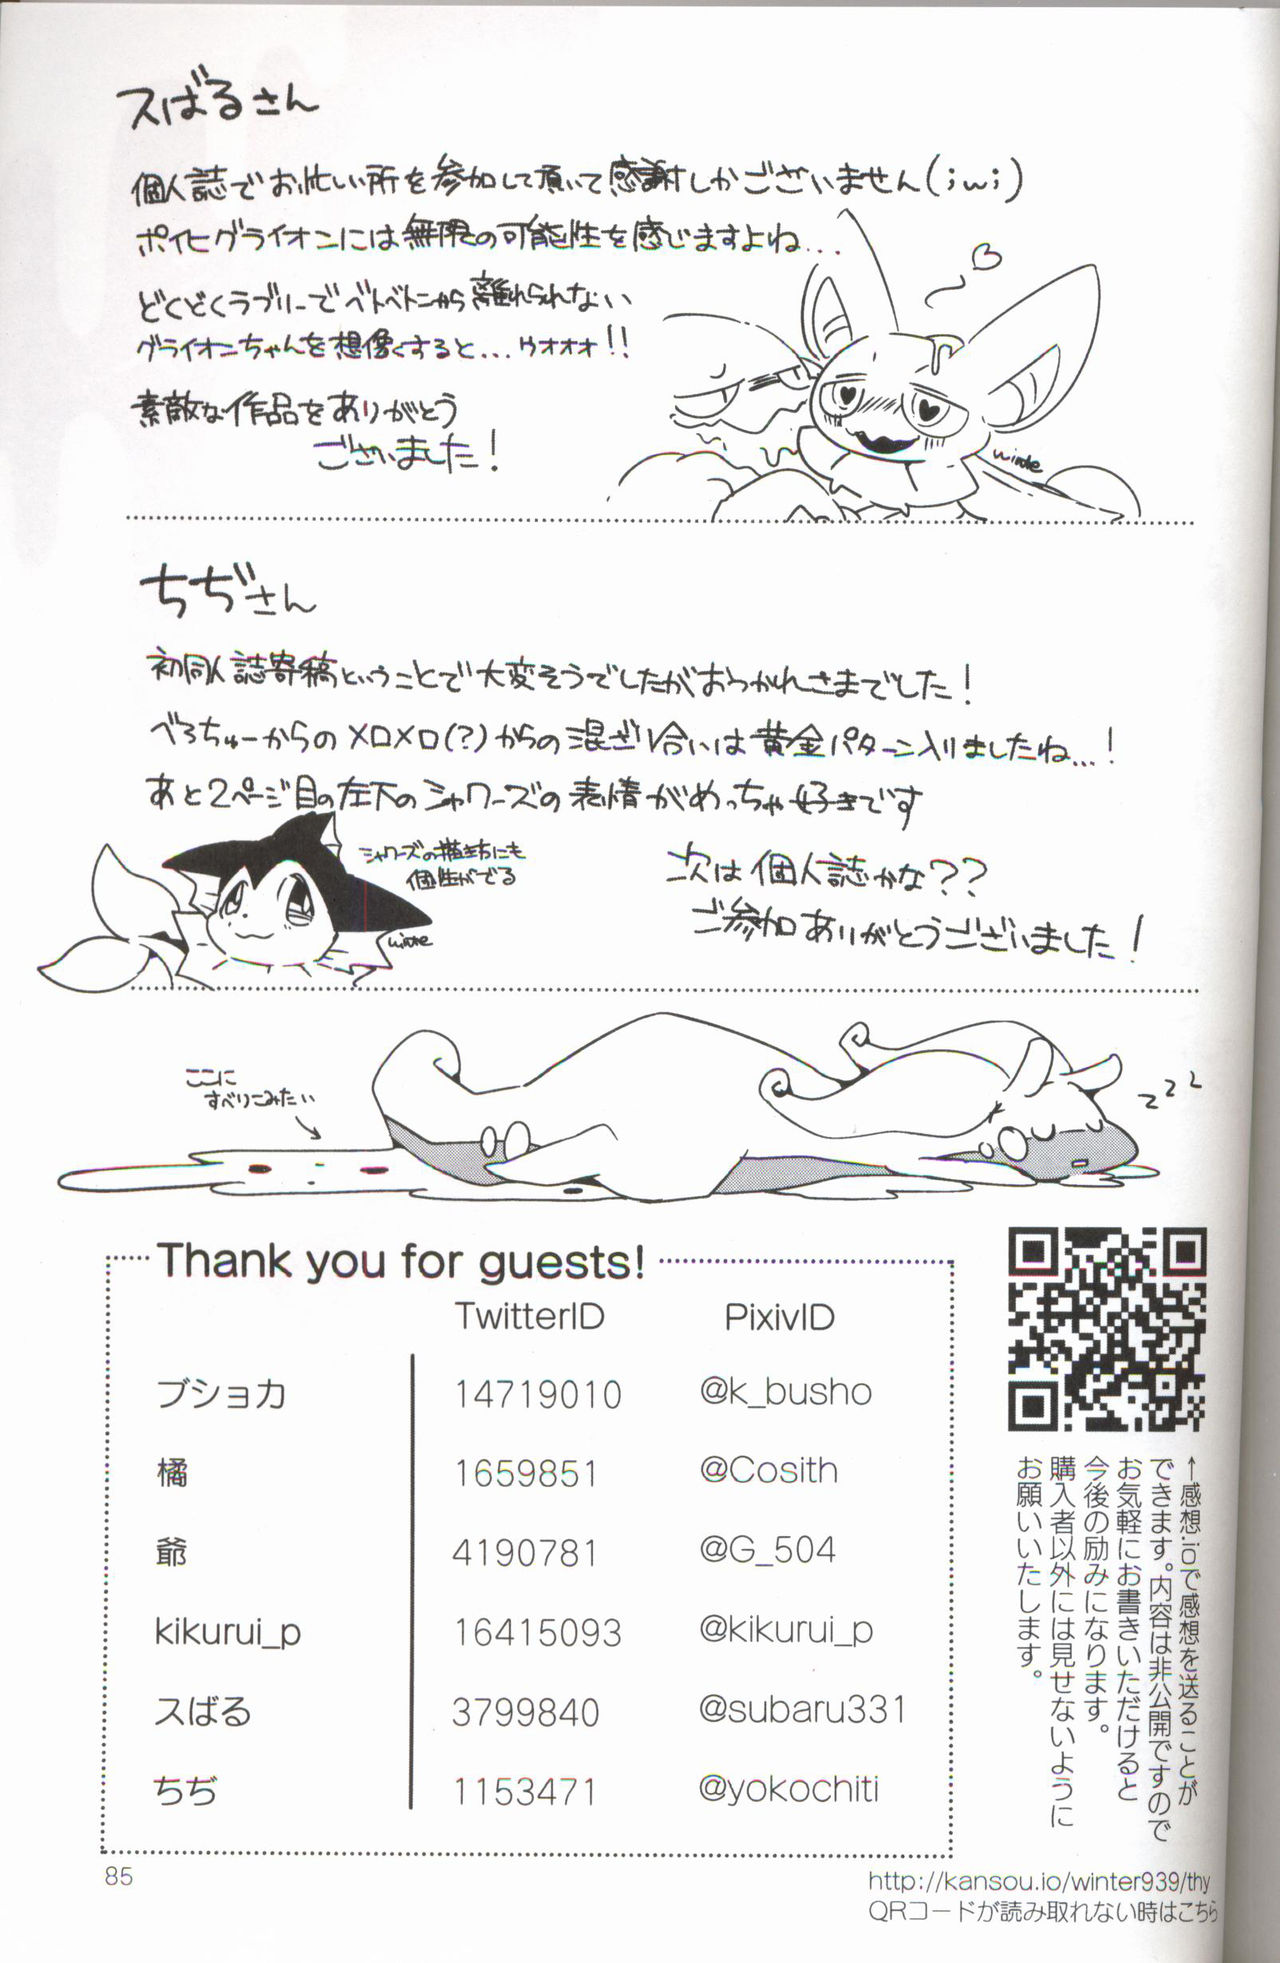 スばるさん
個人誌でお忙しい所を参加して頂いて感謝しかございません(;w;)
ポイヒグライオンには無限の可能性を感じますよね...
どくどくラブリーでベトベトンから離れられない
グライオンちゃんを想像すると...ゥオオオ!!
素敵な作品をありがとう
ございました!
ちぢさん
初同人誌寄稿ということで大変そうでしたがおつかれさまでした!
べろちゅーからのメロメロ(?)からの混ざり合いは黄金パターン入りましたね...!
あと2ページ目の左下のシャワーズの表情がめっちゃ好きです
シャワーズの描き方にも
個性がでる
次は個人誌かな??
ご参加ありがとうございました!
ここに
すべりこみたい
zzz
Thank you for guests!
TwitterID PixivID
ブショカ 14719010 @k_busho
橘 1659851 @Cosith
爺 4190781 @G_504
kikurui_p 16415093 @kikurui_p
スばる 3799840 @subaru331
ちぢ 1153471 @yokochiti
←感想.ioで感想を送ることが
できます。内容は非公開ですので
お気軽にお書きいただけると
今後の励みになります。
購入者以外には見せないように
お願いいたします。
85
http://kansou.io/winter939/thy
QRコードが読み取れない時はこちら